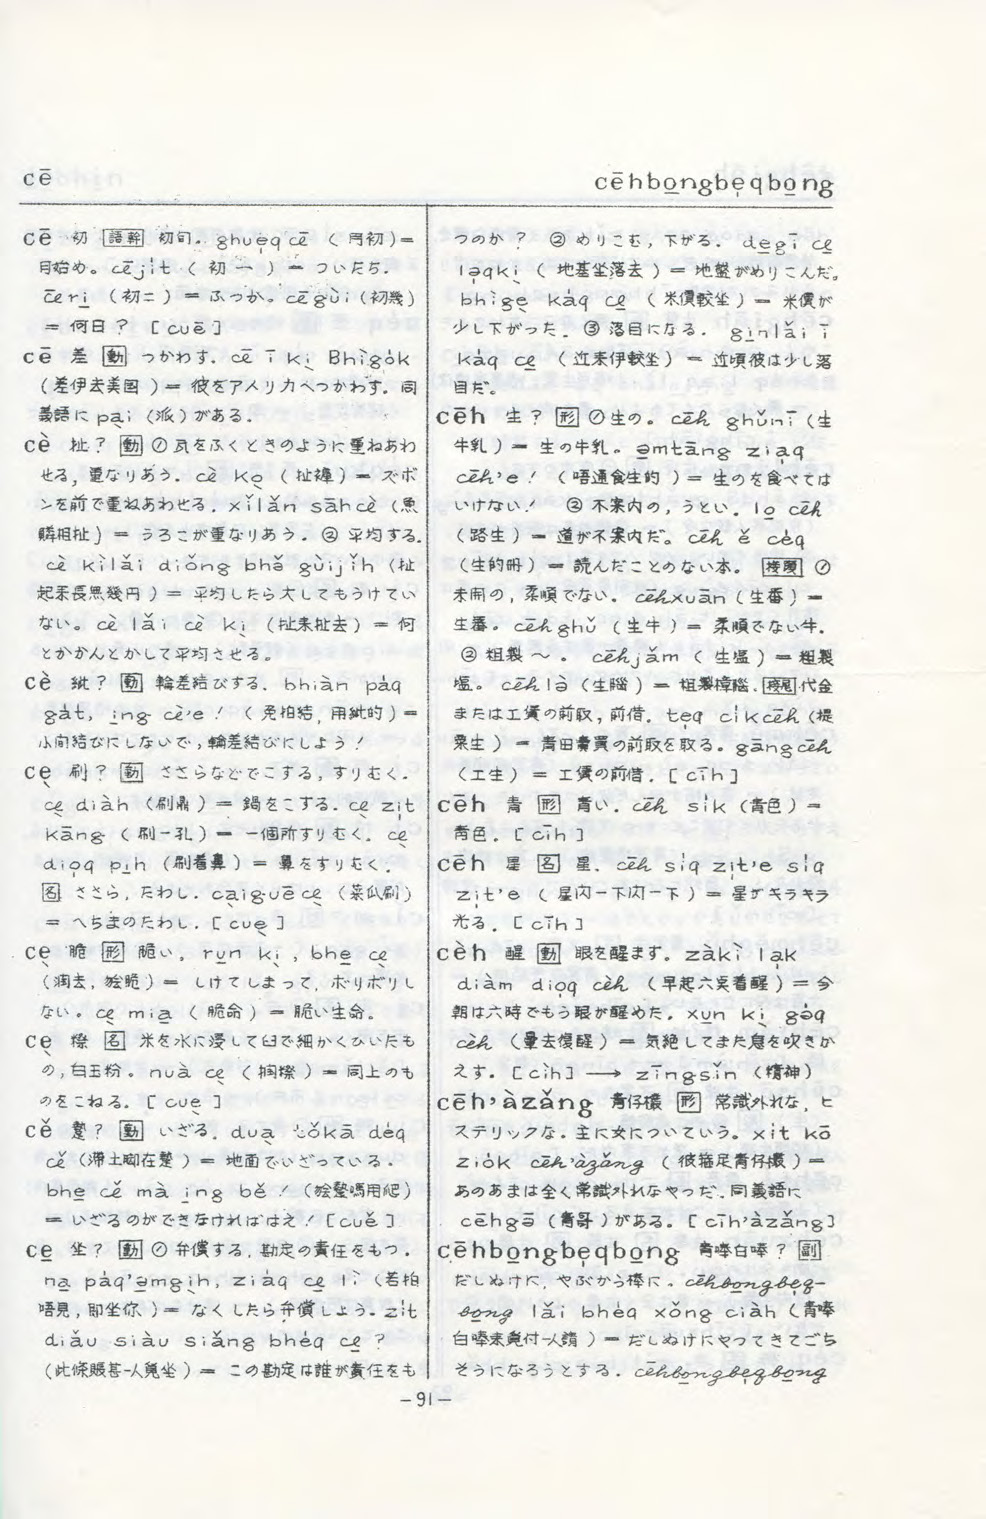 cē
cēhbo̱ngbe̱̍qbo̱ng
cē 初 [語幹] 初旬。ghue̍qcē (月初)=
月始め。cēji̍t (初一)= ついたち。
cēri̱ (初二)= ふつか。cēgùi (初幾)
= 何日? [cuē]
cē 差 [動] つかわす。cē ī kị̀ Bhìgȯk
(差伊去美国)= 彼をアメリカへつかわす。同
義語に pại (派)がある。
cè 扯? [動] ①瓦をふくときのように重ねあわ
せる, 重なりあう。cè kọ̀ (扯褲)= ズボ
ンを前で重ねあわせる。xǐlǎn sāhcè (魚
鱗相扯)= うろこが重なりあう。②平均する。
cè kìlǎi diǒng bhǎ gùiji̍h (扯
起来長無幾円)= 平均したら大してもうけてい
ない。cè lǎi cè kị̀ (扯来扯去)= 何
とかかんとかして平均させる。
cè 紕? [動] 輪差結びする。bhiàn pa̍q
ga̍t, i̱ng cè'e! (免拍結, 用紕的)=
小間結びにしないで, 輪差結びにしよう!
cẹ̀ 刷? [動] ささらなどでこする, すりむく。
cẹ̀ diàh (刷鼎)= 鍋をこする。cẹ̀ zi̍t
kāng (刷一孔)= 一個所すりむく。cẹ̀
diọq pi̱h (刷着鼻)= 鼻をすりむく。
[名] ささら, たわし。cạiguēcẹ̀ (菜瓜刷)
= へちまのたわし。[cuẹ̀]
cẹ̀ 脆 [形] 脆い。ru̱n kị̀, bhe̱ cẹ̀
(潤去, 𣍐脆)= しけてしまって, ポリポリし
ない。cẹ̀ mia̱ (脆命)= 脆い生命。
cẹ̀ [名] 米を水に浸して臼で細かくひいたも
の, 白玉粉。nuà cẹ̀ = 同上のも
のをこねる。[cuẹ̀]
cě 蹔? [動] いざる。dua̱ tǒkā dėq
cě = 地面でいざっている。
bhe̱ cě mà i̱ng bě
= いざるのができなければはえ! [cuě]
ce̱ 坐? [動] ①弁償する, 勘定の責任をもつ。
na̱ pa̍q'ə̱mgị̀h, zia̍q ce̱ lì (若拍
唔見, 即坐你)= なくしたら弁償しよう。zi̍t
diǎu siàu siǎng bhe̍q ce̱?
(此條賬甚人覓坐)= この勘定は誰が責任をも
つのか? ②めりこむ, 下がる。de̱gī ce̱
la̍qkị̀ (地基坐落去)= 地盤がめりこんだ。
bhìgẹ̀ ka̍q ce̱ (米價較坐)= 米價が
少し下がった。③落目になる。gi̱nlǎi ī
ka̍q ce̱ (近来伊較坐)= 近頃彼は少し落
目だ。
cēh 生? [形] ①生の。cēh ghǔnī (生
牛乳)= 生の牛乳。ə̱mtāng zia̍q
cēh'e! (唔通食生的)= 生のを食べては
いけない! ②不案内の, うとい。lo̱ cēh
(路生)= 道が不案内だ。cēh ě cėq
(生的冊)= 読んだことのない本。[接頭] ①
未開の, 柔順でない。cēhxuān (生番)=
生番。cēhghǔ (生牛)= 柔順でない牛。
②粗製〜。cēhjǎm (生塩)= 粗製
塩。cēhlò (生腦)= 粗製樟腦。[接尾] 代金
または工賃の前取, 前借。tėq cìkcēh (提
粟生)= 青田売買の前取を取る。gāngcēh
(工生)= 工賃の前借。[cīh]
cēh 青 [形] 青い。cēh sik (青色)=
青色。[cīh]
cēh 星 [名] 星。cēh si̍q zi̍t'e si̍q
zi̍t'e (星閃一下閃一下)= 星がキラキラ
光る。[cīh]
cèh 醒 [動] 眼を醒ます。zàkì la̍k
diàm diọq cèh (早起六点着醒)= 今
朝は六時でもう眼が醒めた。xu̱n kị̀ gəq
cèh (暈去復醒)= 気絶してまた息を吹きか
えす。[cìh] → zīngsǐn (精神)
cēh'àzǎng 青仔欉 [形] 常識外れな, ヒ
ステリックな。主に女についていう。xit kō
ziȯk cēh'àzǎng (彼箍足青仔欉)=
あのあまは全く常識外れなやつだ。同義語に
cēhgə̄ (青哥)がある。[cīh'àzǎng]
cēhbo̱ngbe̱̍qbo̱ng 青嗙白嗙? [副]
だしぬけに, やぶから棒に。cēhbo̱ngbe̱̍q-
bo̱ng lǎi bhe̍q xǒng ciàh (青嗙
白嗙来覓付人請)= だしぬけにやってきてごち
そうになろうとする。cēhbo̱ngbe̱̍qbo̱ng
-91-